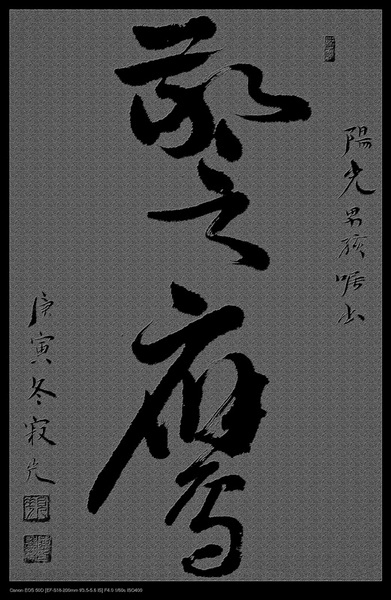 警之鷹
陽光男孩
庚寅冬寂
Canon EOS 50D [EF-S18-200mm f/3.5-5.6 IS] F4.0 1/60s ISO400